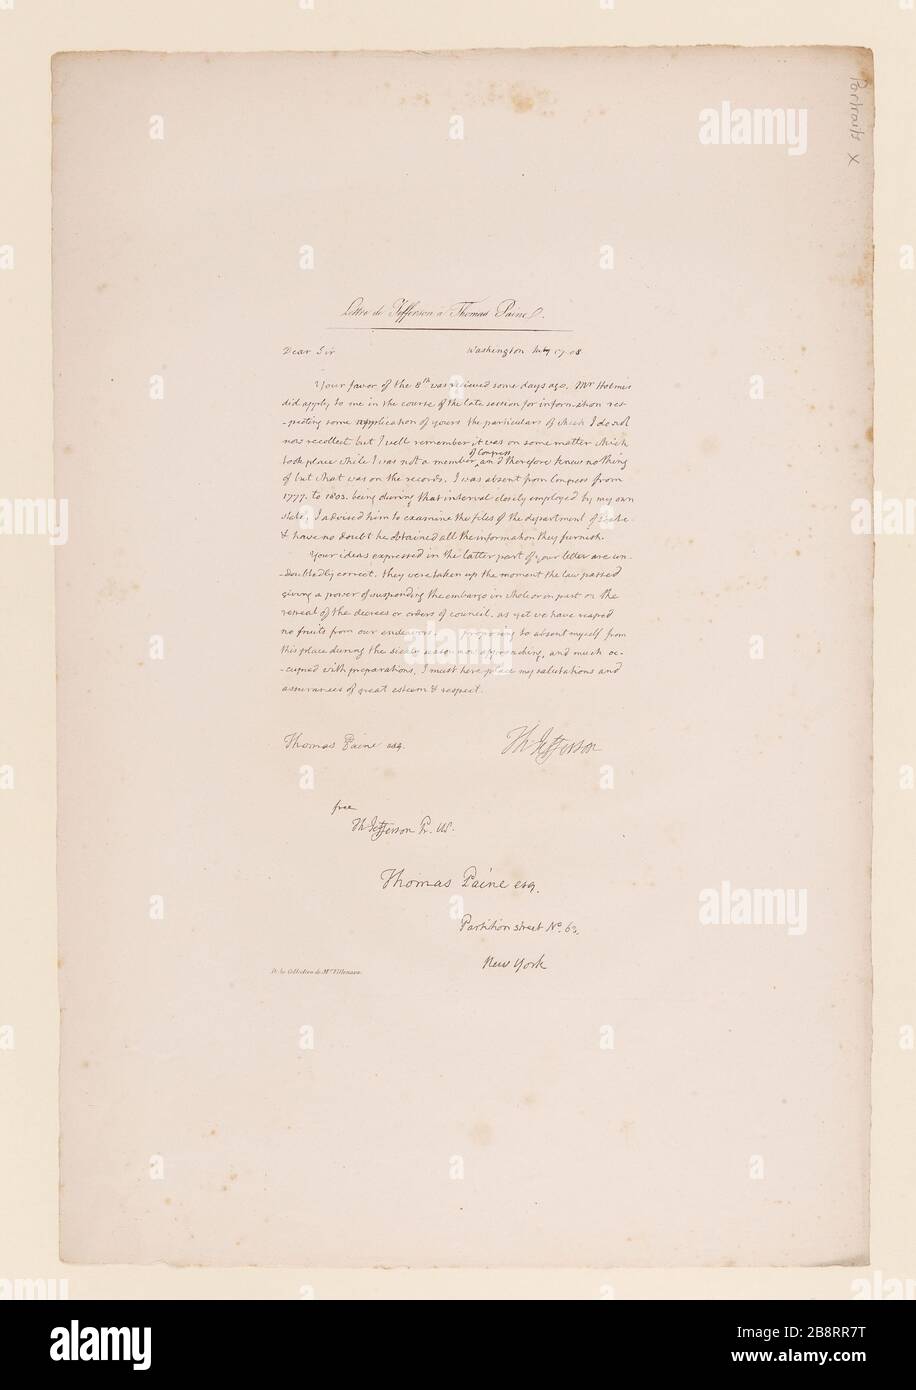 Portraits X
Lettre de Jefferson à Thomas Paine.
Dear Sir Washington July 17. 08
Your favor of the 8th was recieved some days ago. Mr Holmes
did apply to me in the course of the late session for information res-
-pecting some application of yours the particulars of which I do not
now recollect but I well remember it was on some matter which
took place while I was not a member of Congress and therefore knew nothing
of but what was on the records. I was absent from Congress from
1777. to 1803. being during that interval closely employed by my own
state. I advised him to examine the files of the department of State
& have no doubt he obtained all the information they furnish.
Your ideas expressed in the latter part of your letter are un-
-doubtedly correct. they were taken up the moment the law passed
giving a power of suspending the embargo in whole or in part on the
retreat of the decrees or orders of council. as yet we have reaped
no fruits from our endeavors. proposing to absent myself from
this place during the sickly season now approaching, and much oc-
-cupied with preparations, I must here place my salutations and
assurances of great esteem & respect.
Thomas Paine esq. Th Jefferson
free
Th Jefferson Pr. US.
Thomas Paine esq.
Partition street No. 63,
New York
De la Collection de Mr. Villenave.
alamy
alamy
alamy
alamy
alamy
alamy
alamy
Image ID: 2B8RR7T
www.alamy.com